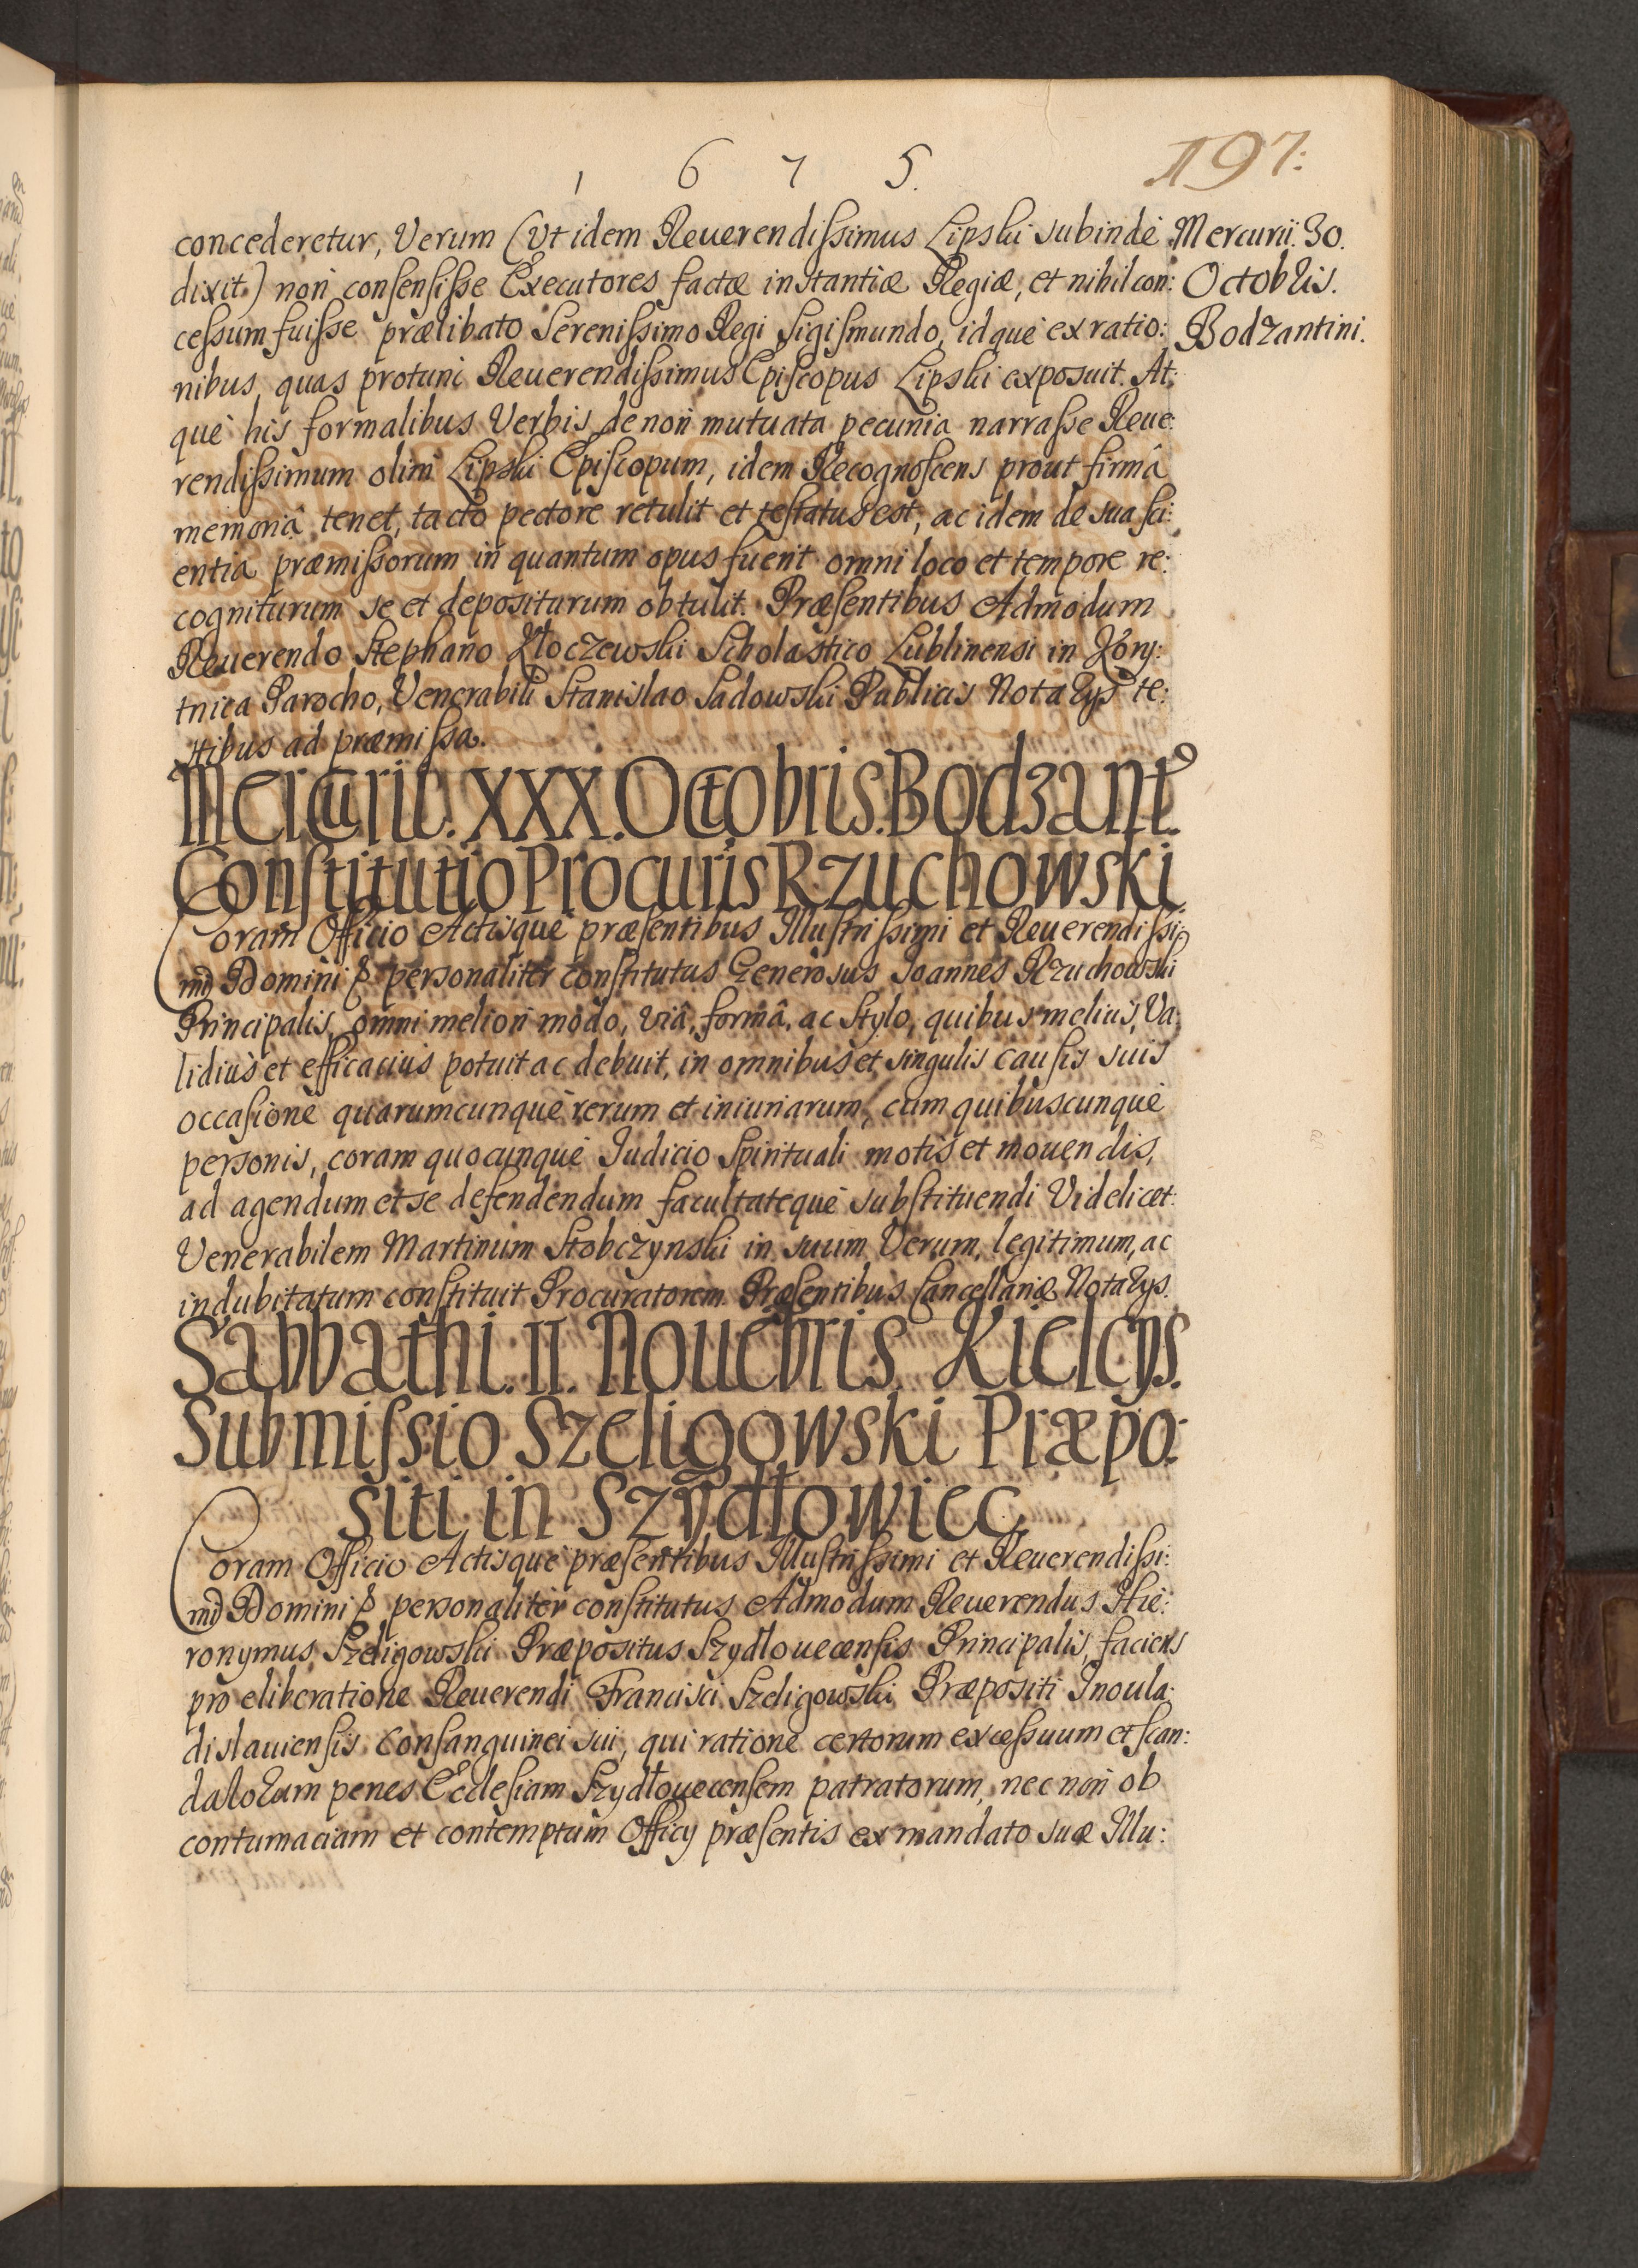 1 6 7 5. 197:
concederetur, Verum (Vt idem Reuerendissimus Lipski subindè Mercurii. 30.
dixit.) non consensisse Executores factæ instantiæ Regiæ, et nihil con: Octobris.
cessum fuisse prælibato Serenissimo Regi Sigismundo, idquè ex ratio: Bodzantini.
nibus, quas protunc Reuerendissimus Episcopus Lipski exposuit. At:
què his formalibus Verbis de non mutuata pecunia narrasse Reue:
rendissimum olim Lipski Episcopum, idem Recognoscens prout firmâ
memoriâ tenet, tacto pectore retulit et testatus est, ac idem de sua sci:
entia præmissorum in quantum opus fuerit omni loco et tempore re:
cogniturum se et depositurum obtulit. Præsentibus Admodum
Reuerendo Stephano Kłoczewski Scholastico Lublinensi in Kory:
tnica Parocho, Venerabili Stanislao Sadowski Publicis Notarys te:
stibus ad præmissa.
Mercurii. XXX. Octobris. Bodzant.
Constitutio Procuris Rzuchowski
Coram Officio Actisquè præsentibus Illustrissimi et Reuerendissi:
mi Domini & personaliter constitutus Generosus Joannes Rzuchowski
Principalis, omni meliori modo, viâ, formâ, ac stylo, quibus melius, Va:
lidius et efficacius potuit ac debuit, in omnibus et singulis causis suis
occasione quarumcunquè rerum et iniuriarum, cum quibuscunquè
personis, coram quocunquè Judicio Spirituali motis et mouendis,
ad agendum et se defendendum facultatequè substituendi Videlicet:
Venerabilem Martinum Stobczynski in suum Verum, legitimum, ac
indubitatum constituit Procuratorem. Præsentibus Cancellariæ Notarys.
Sabbathi. II. Nouebris. Kielcys.
Submissio Szeligowski Præpo:
siti in Szydłowiec
Coram Officio Actisquè præsentibus Illustrissimi et Reuerendissi:
mi Domini & personaliter constitutus Admodum Reuerendus Hie:
ronymus Szeligowski Præpositus Szydłouecensis Principalis, faciens
pro eliberatione Reuerendi Francisci Szeligowski Præpositi Inoula:
dislauiensis Consanguinei sui, qui ratione certorum excessuum et scan:
dalorum penes Ecclesiam Szydłouecensem patratorum, nec non ob
contumaciam et contemptum Officy præsentis ex mandato suæ Illu: